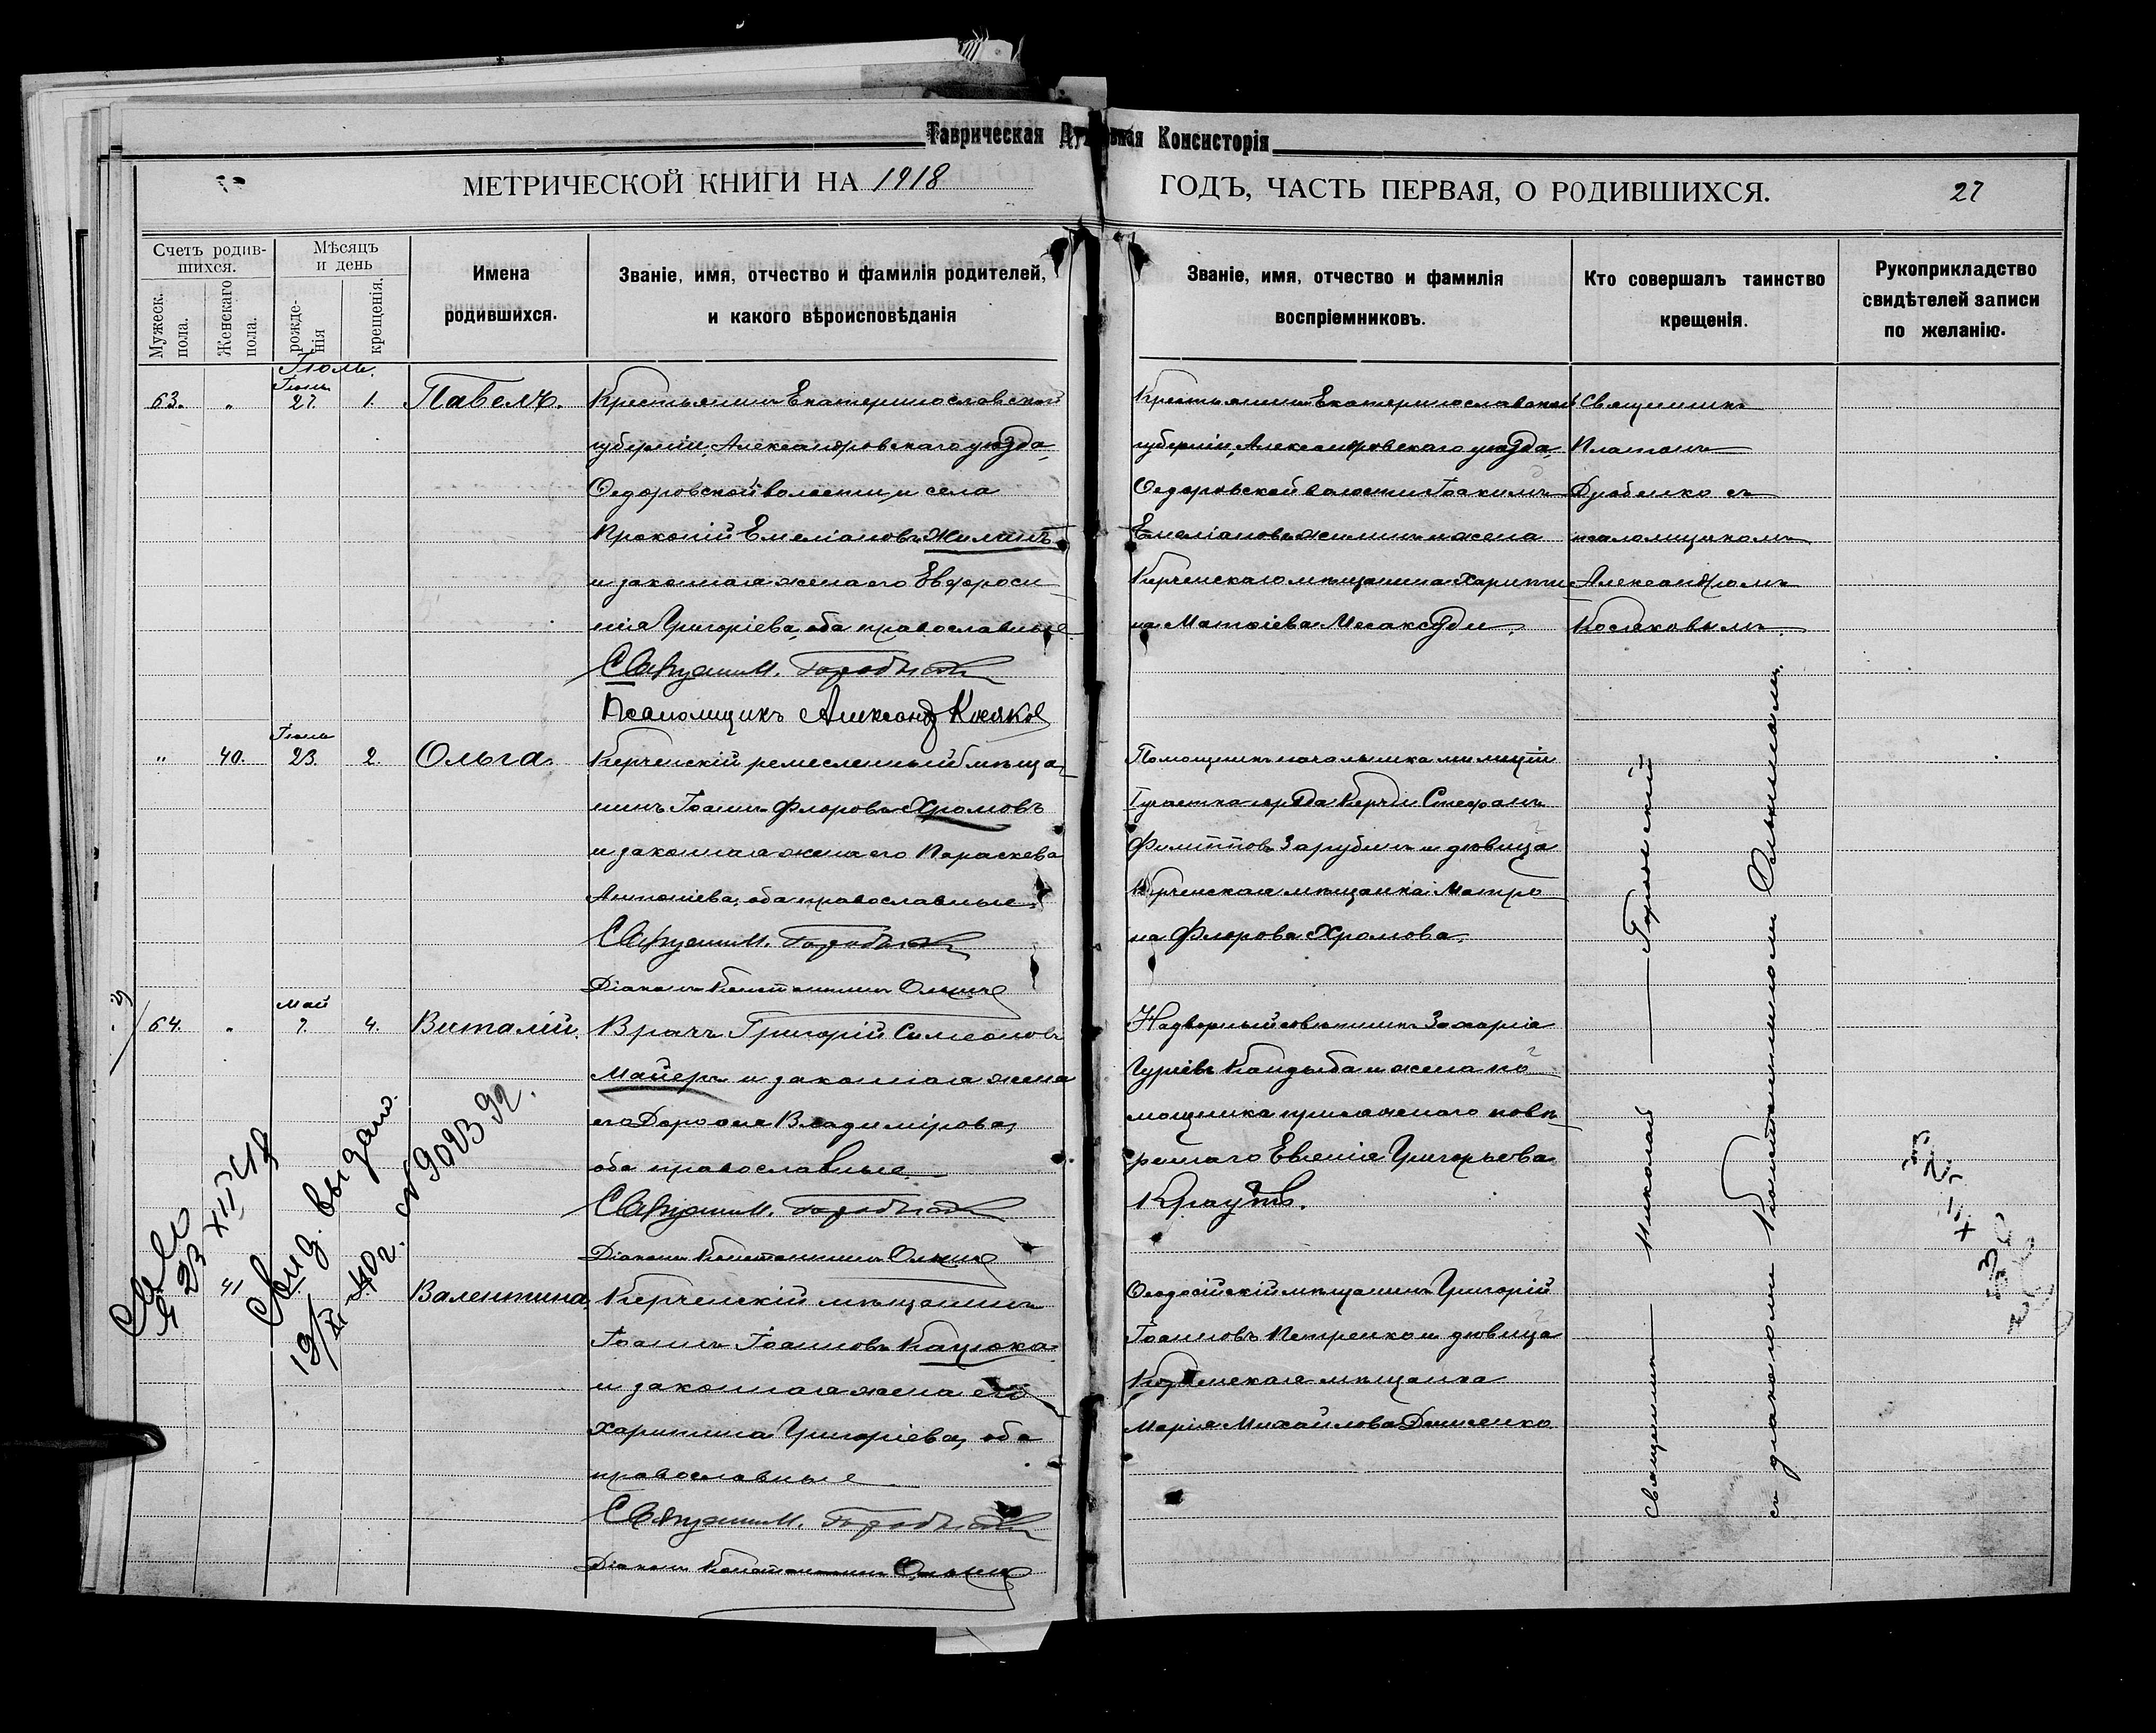 Таврическая Духовная Консисторія
МЕТРИЧЕСКОЙ КНИГИ НА 1918 ГОДЪ, ЧАСТЬ ПЕРВАЯ, О РОДИВШИХСЯ. 27
Счетъ родив-
шихся.
Мужеск. пола.
Женскаго пола.
Мѣсяцъ
и день
рожде-
нія
крещенія.
Имена
родившихся.
Званіе, имя, отчество и фамилія родителей,
и какого вѣроисповѣданія
Званіе, имя, отчество и фамилія
воспріемниковъ.
Кто совершалъ таинство
крещенія.
Рукоприкладство
свидѣтелей записи
по желанію.
Іюль.
63. " Іюнь 27. 1. Павелъ.
Крестьянинъ Екатеринославской
губерніи, Александровскаго уѣзда,
Ѳедоровской волости и села
Прокопій Емеліановъ Жилинъ
и законная жена его Евфроси
нія Григоріева, оба православные
Священ. М.
Псаломщикъ Александ Косяков
Крестьянинъ Екатеринославской
губерніи, Александровскаго уѣзда,
Ѳедоровской волости Іоакимъ
Емеліановъ Жилинъ и жена
Керченскаго мѣщанина Харити
на Матѳіева Месаксуди.
Священникъ
Платонъ
Дробенко съ
псаломщикомъ
Александромъ
Косяковымъ.
" 40. Іюнь 23. 2. Ольга.
Керченскій ремесленный мѣща
нинъ Іоаннъ Флоровъ Хромовъ
и законная жена его Параскева
Антоніева, оба православные.
Священ. М.
Діаконъ Константинъ
Помощникъ начальника милиціи
I участка города Керчи Стефанъ
Филипповъ Зарубинъ и дѣвица
Керченская мѣщанка Матро
на Флорова Хромова.
64. " Май 7. 4. Виталій.
Врачъ Григорій Симеоновъ
Майеръ и законная жена
его Дороѳея Владимірова,
оба православные.
Священ. М.
Діаконъ Константинъ
Надворный совѣтникъ Захарія
Гуріевъ Кандыба и жена по
мощника присяжнаго повѣ
реннаго Евгенія Григорьева
Краутъ.
23 XII 18
Свид. выдано.
19/XI 40г.
№ 902392.
" 41 Валентина
Керченскій мѣщанинъ
Іоаннъ Іоанновъ Кацюка
и законная жена его
Харитина Григоріева, оба
православные
Священ. М.
Діаконъ Константинъ
Ѳеодосійскій мѣщанинъ Григорій
Іоанновъ Петренко и дѣвица
Керченская мѣщанка
Марія Михайлова Денисенко.
Священникъ Николай
съ діакономъ Константиномъ